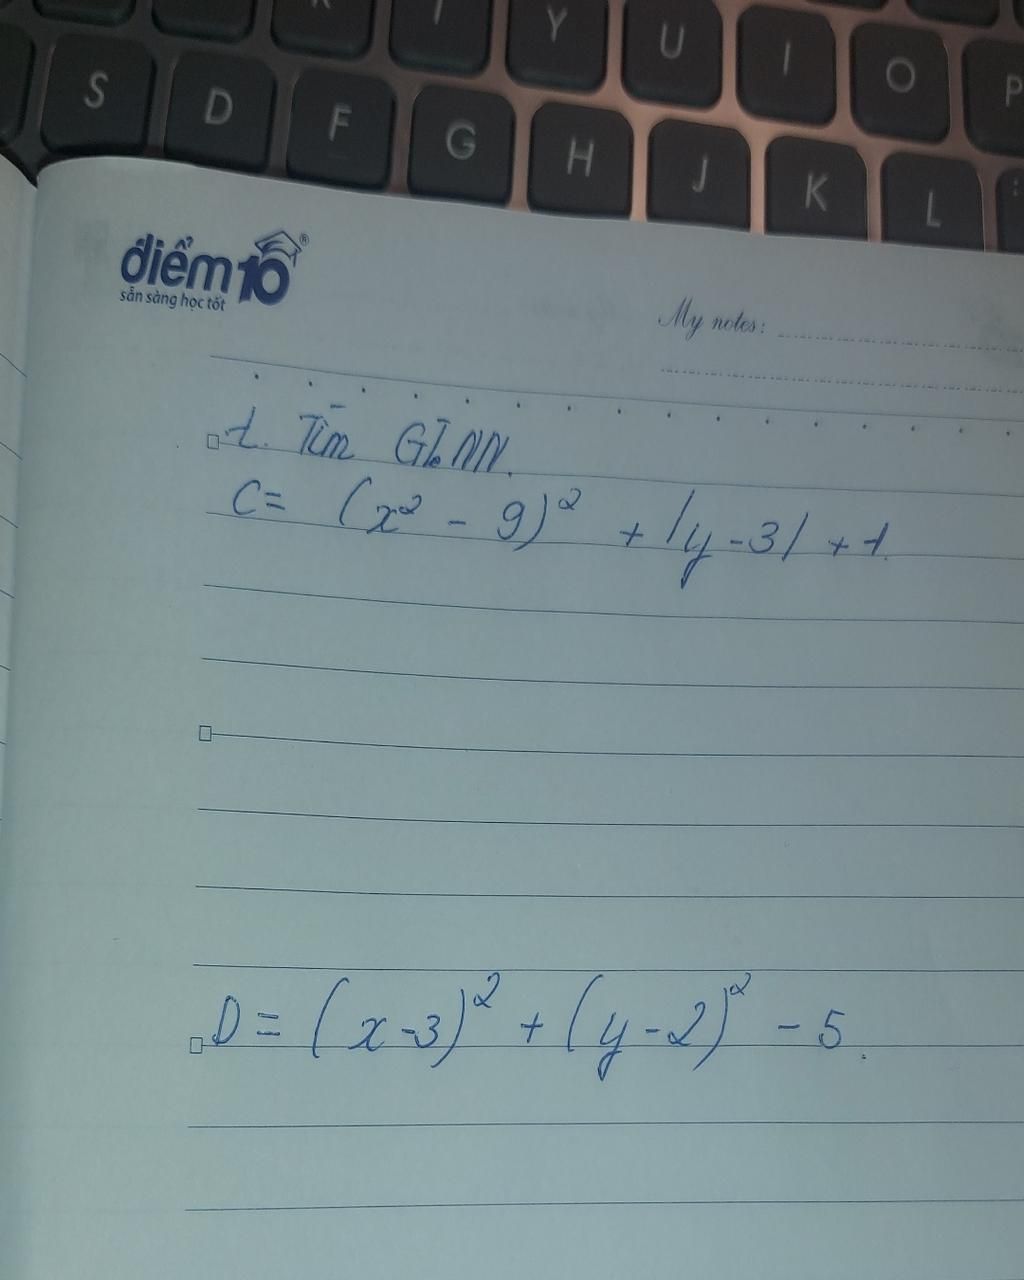 R T Y U I O P
S D F G H J K L ;
điểm10®
sẵn sàng học tốt
My notes:
1. Tìm GTNN.
C = (x² - 9)² + |y - 3| + 1.
D = (x - 3)² + (y - 2)² - 5.